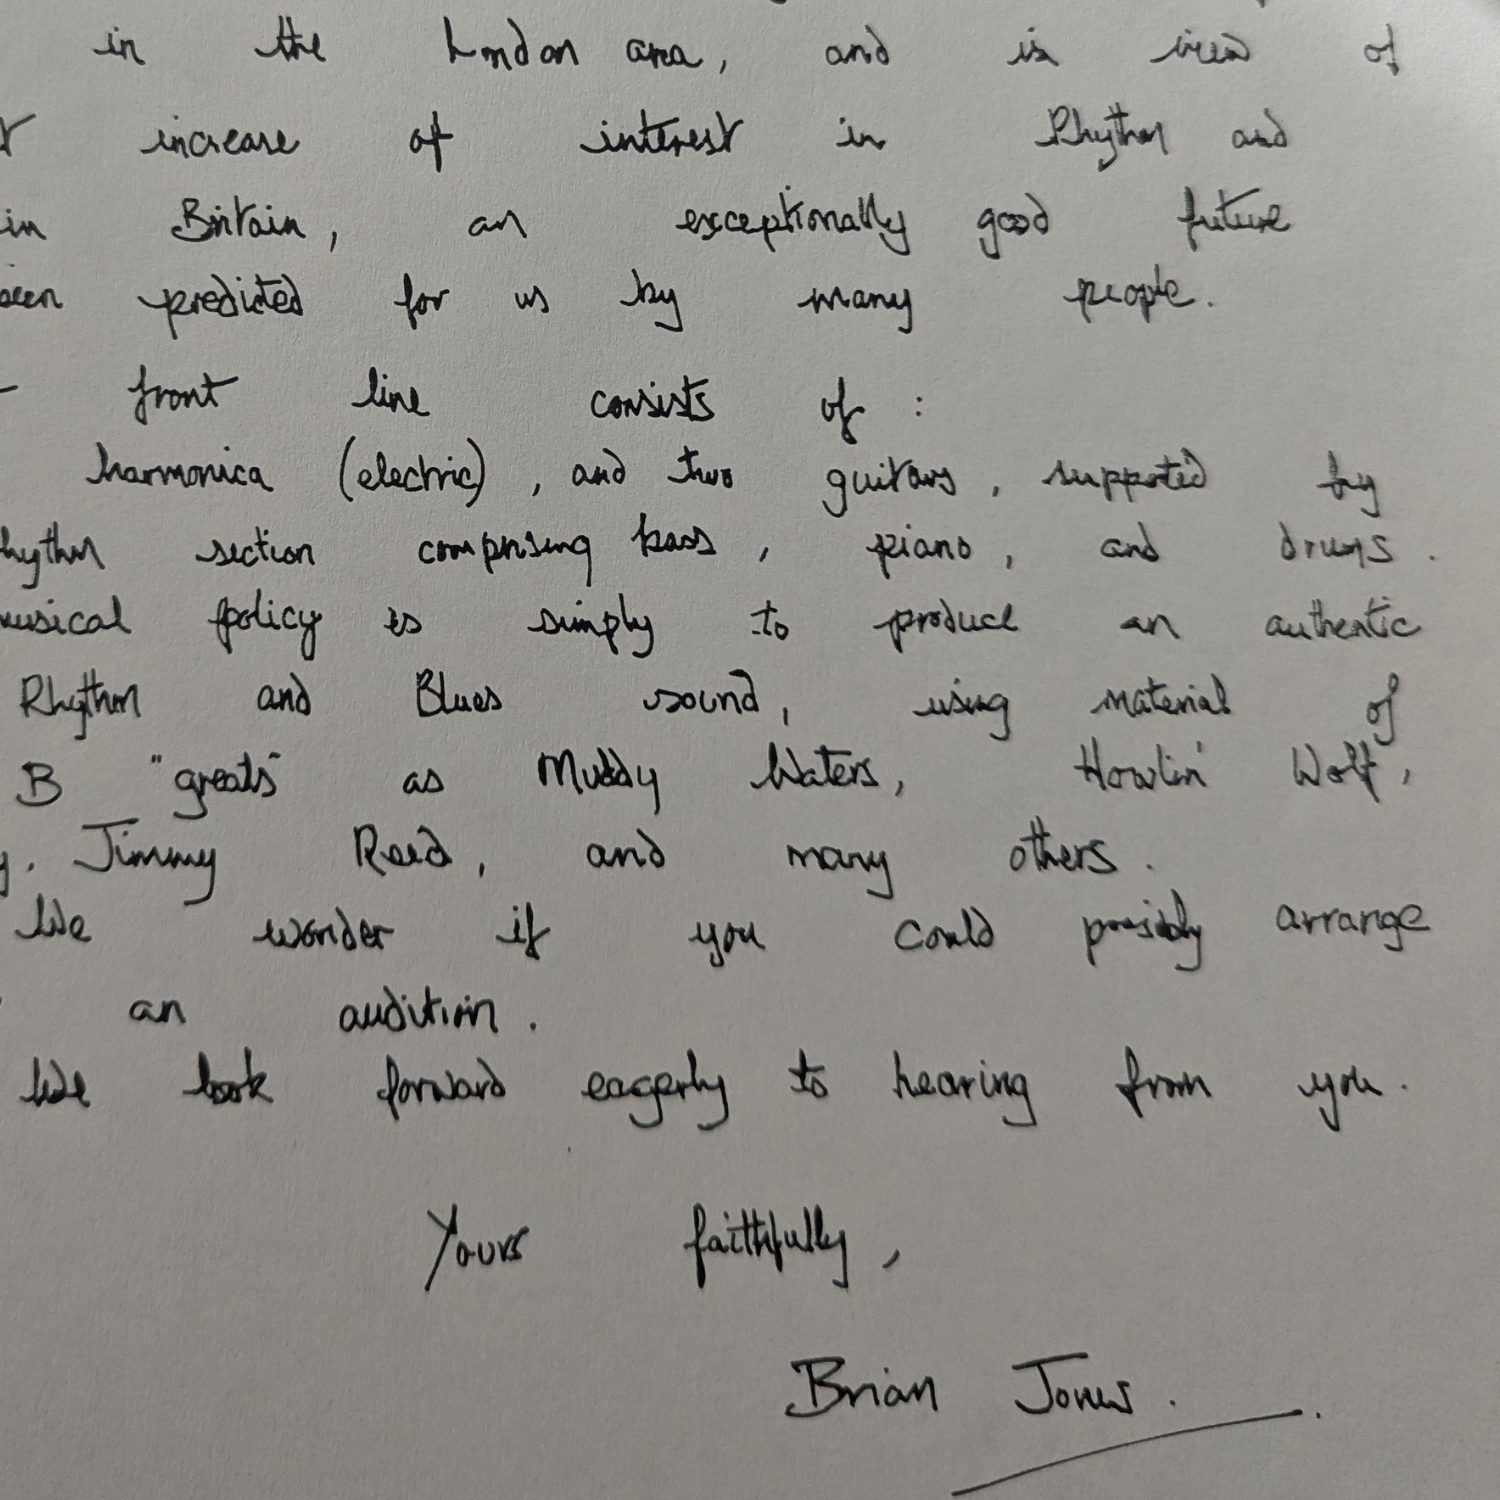 in the London area, and in view of
increase of interest in Rhythm and
in Britain, an exceptionally good future
been predicted for us by many people.
front line consists of :
harmonica (electric), and two guitars, supported by
hythm section comprising bass, piano, and drums.
musical policy is simply to produce an authentic
Rhythm and Blues sound, using material of
B "greats" as Muddy Waters, Howlin' Wolf,
Jimmy Reed, and many others.
We wonder if you could possibly arrange
an audition.
We look forward eagerly to hearing from you.
Yours faithfully,
Brian Jones.